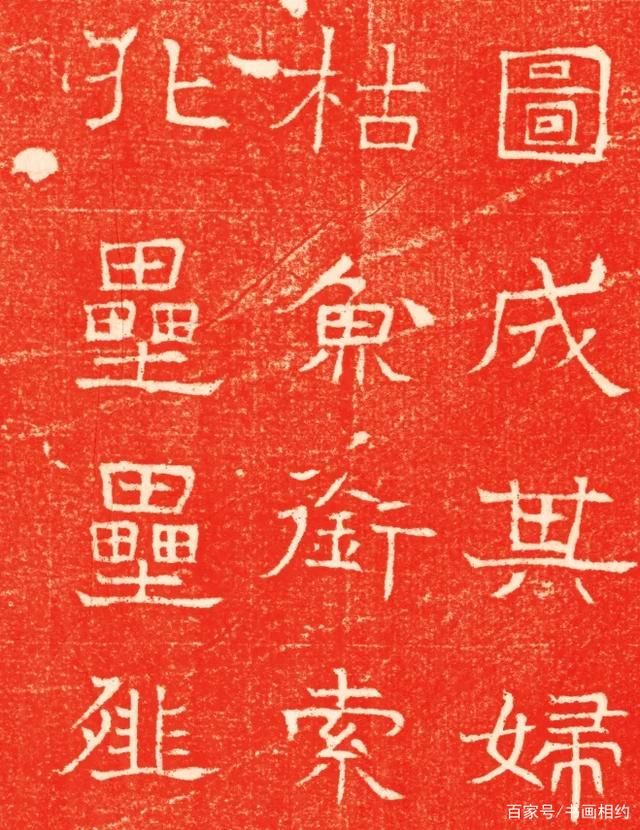 圖成其婦
枯魚銜索
北壘壘
百家号/书画相约